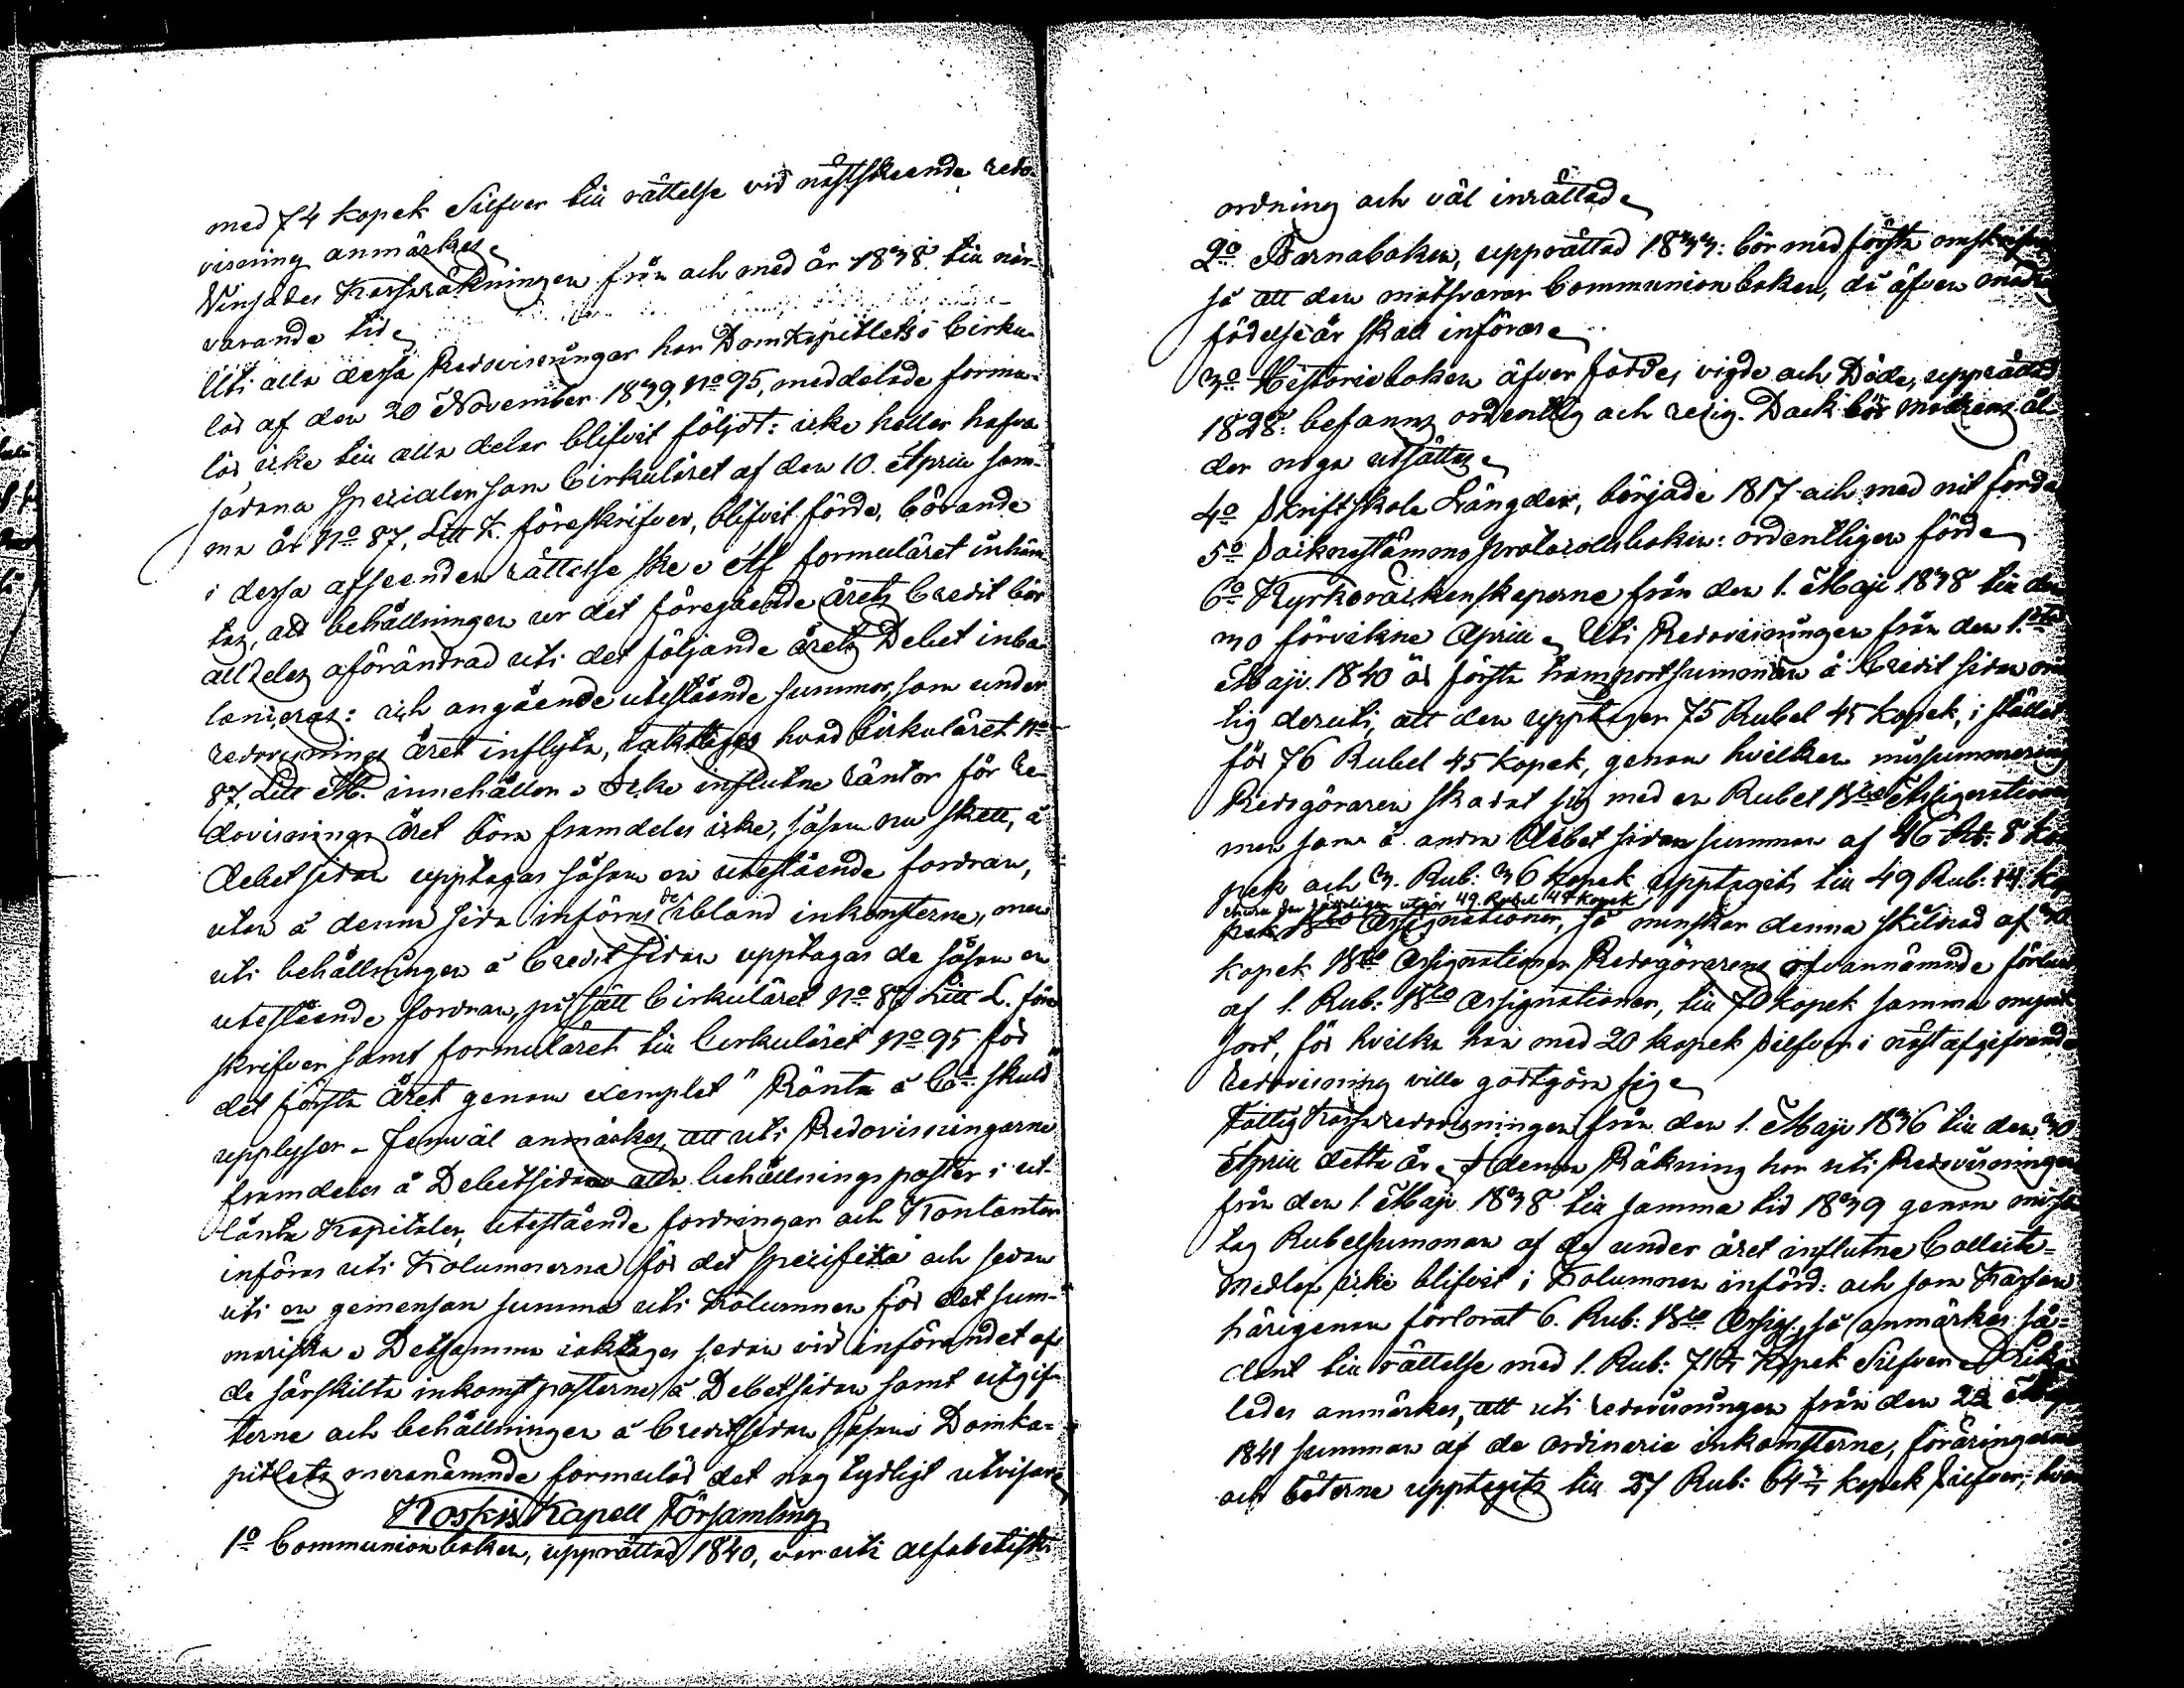 med 74 kopek Silfver till rättelse vid nästskeende redo-
visning anmärkes.
Vinsades Kassaräkningen från och med år 1838 till när-
varande tid.
Uti alla dessa Redovisningar har Domkapitlets i Cirku-
lär af den 20 November 1839, No 95, meddelade formu-
lär icke till alla delar blifvit följdt: icke heller hafva
sådana Specialer som Cirkuläret af den 10. April sam-
ma år No 87, Litt K. föreskrifver, blifvit förde, börande
i dessa afseenden rättelse ske. Af formuläret inhäm-
tas, att behållningen ur det föregående årets Credit bör
alldeles oförändrad uti det följande årets Debet inba-
lanceras: och angående utestående summor, som under
redovisnings året inflyta, iakttages hvad Cirkuläret No
87, Litt M. innehåller. Icke influtne räntor för re-
dovisnings året böra framdeles icke, såsom nu skett, å
Debet sidan upptagas såsom en utestående fordran,
utan å denna sida införas de ibland inkomsterne, men
uti behållningen å Credit sidan upptagas de såsom en
utestående fordran, på sätt Cirkuläret No 87 Litt L. före-
skrifver samt formuläret till Cirkuläret No 95 för
det första året genom exemplet "Ränta å Cas skuld"
upplyser. Jemväl anmärkes, att uti Redovisningarne
framdeles å Debetsidan alla behållnings poster i ut-
lånta Kapitaler, utestående fordringar och Kontanter
införas uti Kolumnerna för det specifika och sedan
uti en gemensam summa uti Kolumnen för det sum-
mariska. Detsamma iakttages sedan vid införandet af
de särskilta inkomstposterne å Debetsidan samt utgif-
terne och behållningen å Creditsidan såsom Domka-
pitlets meranämnde formulär det nog tydligt utvisar.
Koskis Kapell Församling
1o Communionboken, upprättad 1840, var uti alfabetisk
ordning och väl inrättad.
2o Barnaboken, upprättad 1833: bör med första omskrifvas
så att den motsvarar Communionboken, då äfven
födelseår skall införas.
3o Historieboken öfver födde, vigde och Döde, upprättad
1828: befanns ordentlig och redig. Dock bör modrens ål-
der noga utsättas.
4o Skriftskole Längder, började 1817 och med nit förda
5o Sockenstämmo protocollsboken: ordentligen förde
6o Kyrkoräkenskaperne från den 1. Maji 1838 till den
30 förvikne April. Uti Redovisningen från den 1.sta
Maji 1840 är första transportsumman å Credit sidan
tig deruti, att den upptager 75 Rubel 45 kopek, i stället
för 76 Rubel 45 kopek, genom hvilken missummering
Redogöraren skadat sig med en Rubel Bco Assignationer
men som å andra Debet sidan summan af 46 Rub: 8 ko-
pek och 3. Rub: 36 kopek upptagits till 49 Rub:
ehuru den rätteligen utgör 49. Rubel 44 kopek
Bco Assignationer, så minskar denna skilnad af 30
kopek Bco Assignationer Redogörarens ofvannämnde förlust
af 1. Rub: Bco Assignationer, till 70 kopek samma mynt
sort, för hvilka han med 20 kopek silfver i näst afgifvande
redovisning ville godtgöra sig.
Fattig Kassaredovisningen från den 1. Maji 1836 till den 30
April detta år. I denna Räkning har uti Redovisningen
från den 1. Maji 1838 till samma tid 1839 genom miss-
tag Rubelsumman af de under året influtne Collecte-
medlen icke blifvit i Kolumnen införd: och som Kassan
härigenom förlorat 6. Rub: Bco Assign, så anmärkes så-
dant till rättelse med 1. Rub: 71 3/7 Kopek Silfver. Lika-
ledes anmärkes, att uti redovisningen från den
1841 summan af de ordinarie inkomsterne, föräringarne
och böterne upptagits till 27 Rub: 64 2/7 kopek Silfver,